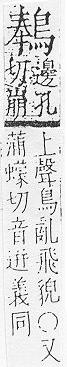 䳞
邊孔
切崩
上聲鳥亂飛貌○又
蒲蠓切音迸義同